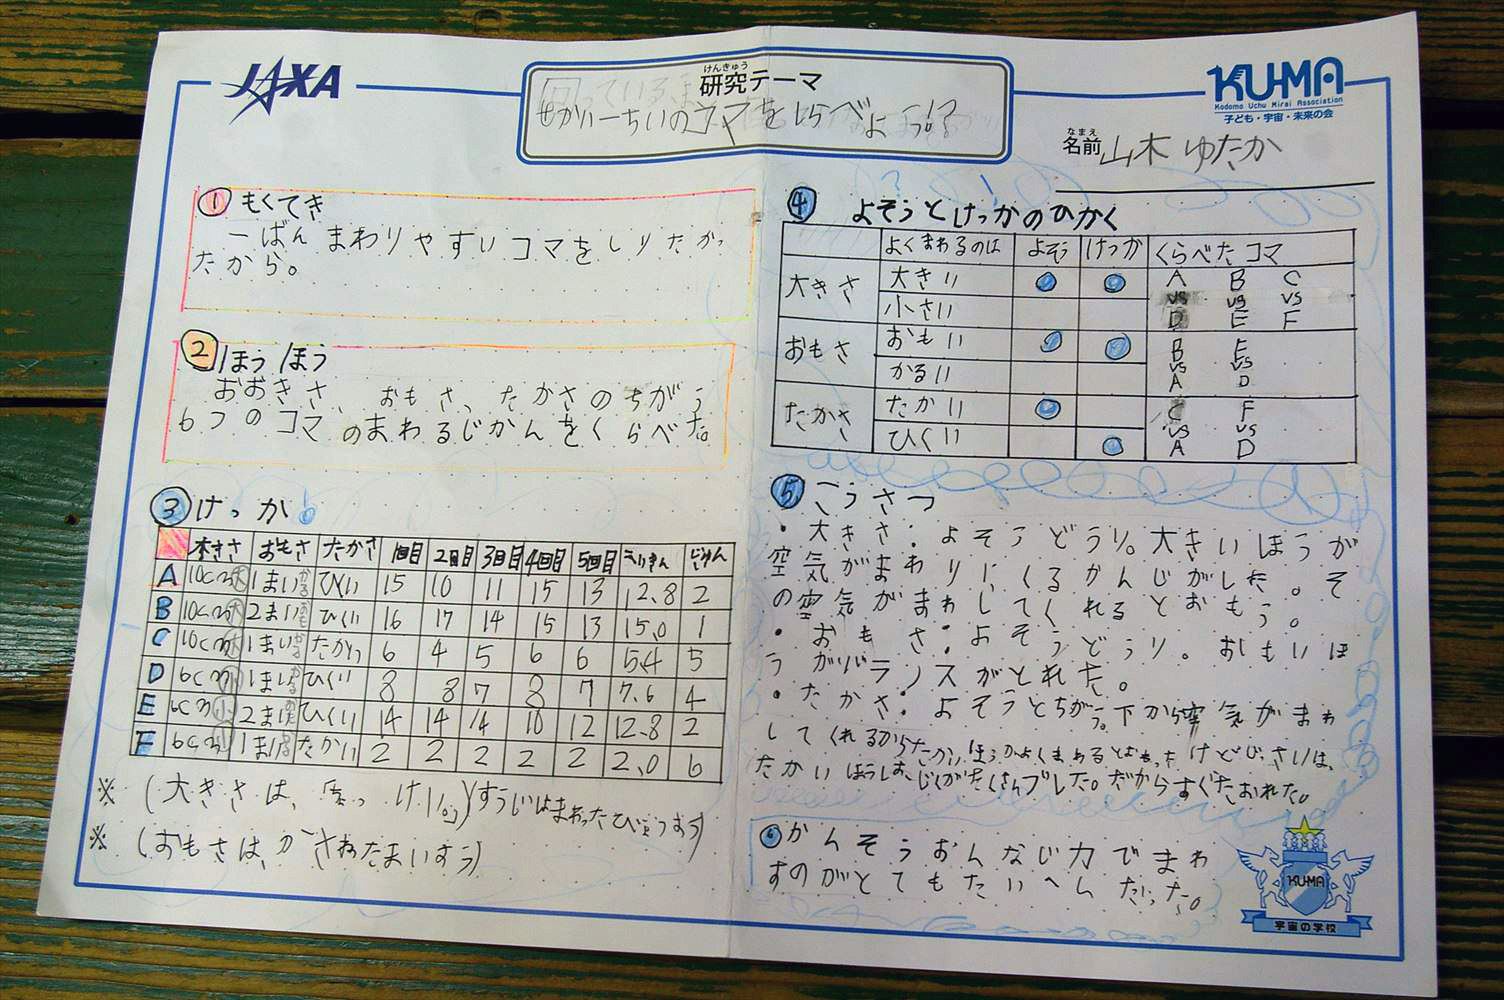 JAXA
けんきゅう
研究テーマ
せかいーちいのコマをしらべよう!?
KU-MA
Kodomo Uchu Mirai Association
子ども・宇宙・未来の会
なまえ
名前 山木 ゆたか
① もくてき
一ばんまわりやすいコマをしりたかっ
たから。
② ほうほう
おおきさ、おもさ、たかさのちがう
6つのコマのまわるじかんをくらべた。
③ けっか
大きさ おもさ たかさ 1回目 2回目 3回目 4回目 5回目 へいきん じゅん
A 10cm 大 1まい かる ひくい 15 10 11 15 13 12.8 2
B 10cm 大 2まい おも ひくい 16 17 14 15 13 15.0 1
C 10cm 大 1まい かる たかい 6 4 5 6 6 5.4 5
D 6cm 小 1まい かる ひくい 8 8 7 8 7 7.6 4
E 6cm 小 2まい おも ひくい 14 14 14 10 12 12.8 2
F 6cm 小 1まい かる たかい 2 2 2 2 2 2.0 6
※ (大きさは、 けい。)(すうじはまわったびょうすう)
※ (おもさは、かさねたまいすう)
④ よそうとけっかのひかく
よくまわるのは よそう けっか くらべたコマ
大きさ 大きい ● ● A B C
小さい vs vs vs
D E F
おもさ おもい ● ● B E
かるい vs vs
A D
たかさ たかい ● C F
ひくい ● vs vs
A D
⑤ こうさつ
・大きさ・よそうどうり。大きいほうが
空気がまわりにくるかんじがした。そ
の空気がまわしてくれるとおもう。
・おもさ・よそうどうり。おもいほ
うがバランスがとれた。
・たかさ・よそうとちがう。下から空気がまわ
してくれるからたかいほうがよくまわるとおもったけどじっさいは、
たかいほうしは、じくがたくさんブレした。だからすぐたおれた。
⑥ かんそう おんなじ力でまわ
すのがとてもたいへんだった。
KU-MA
宇宙の学校